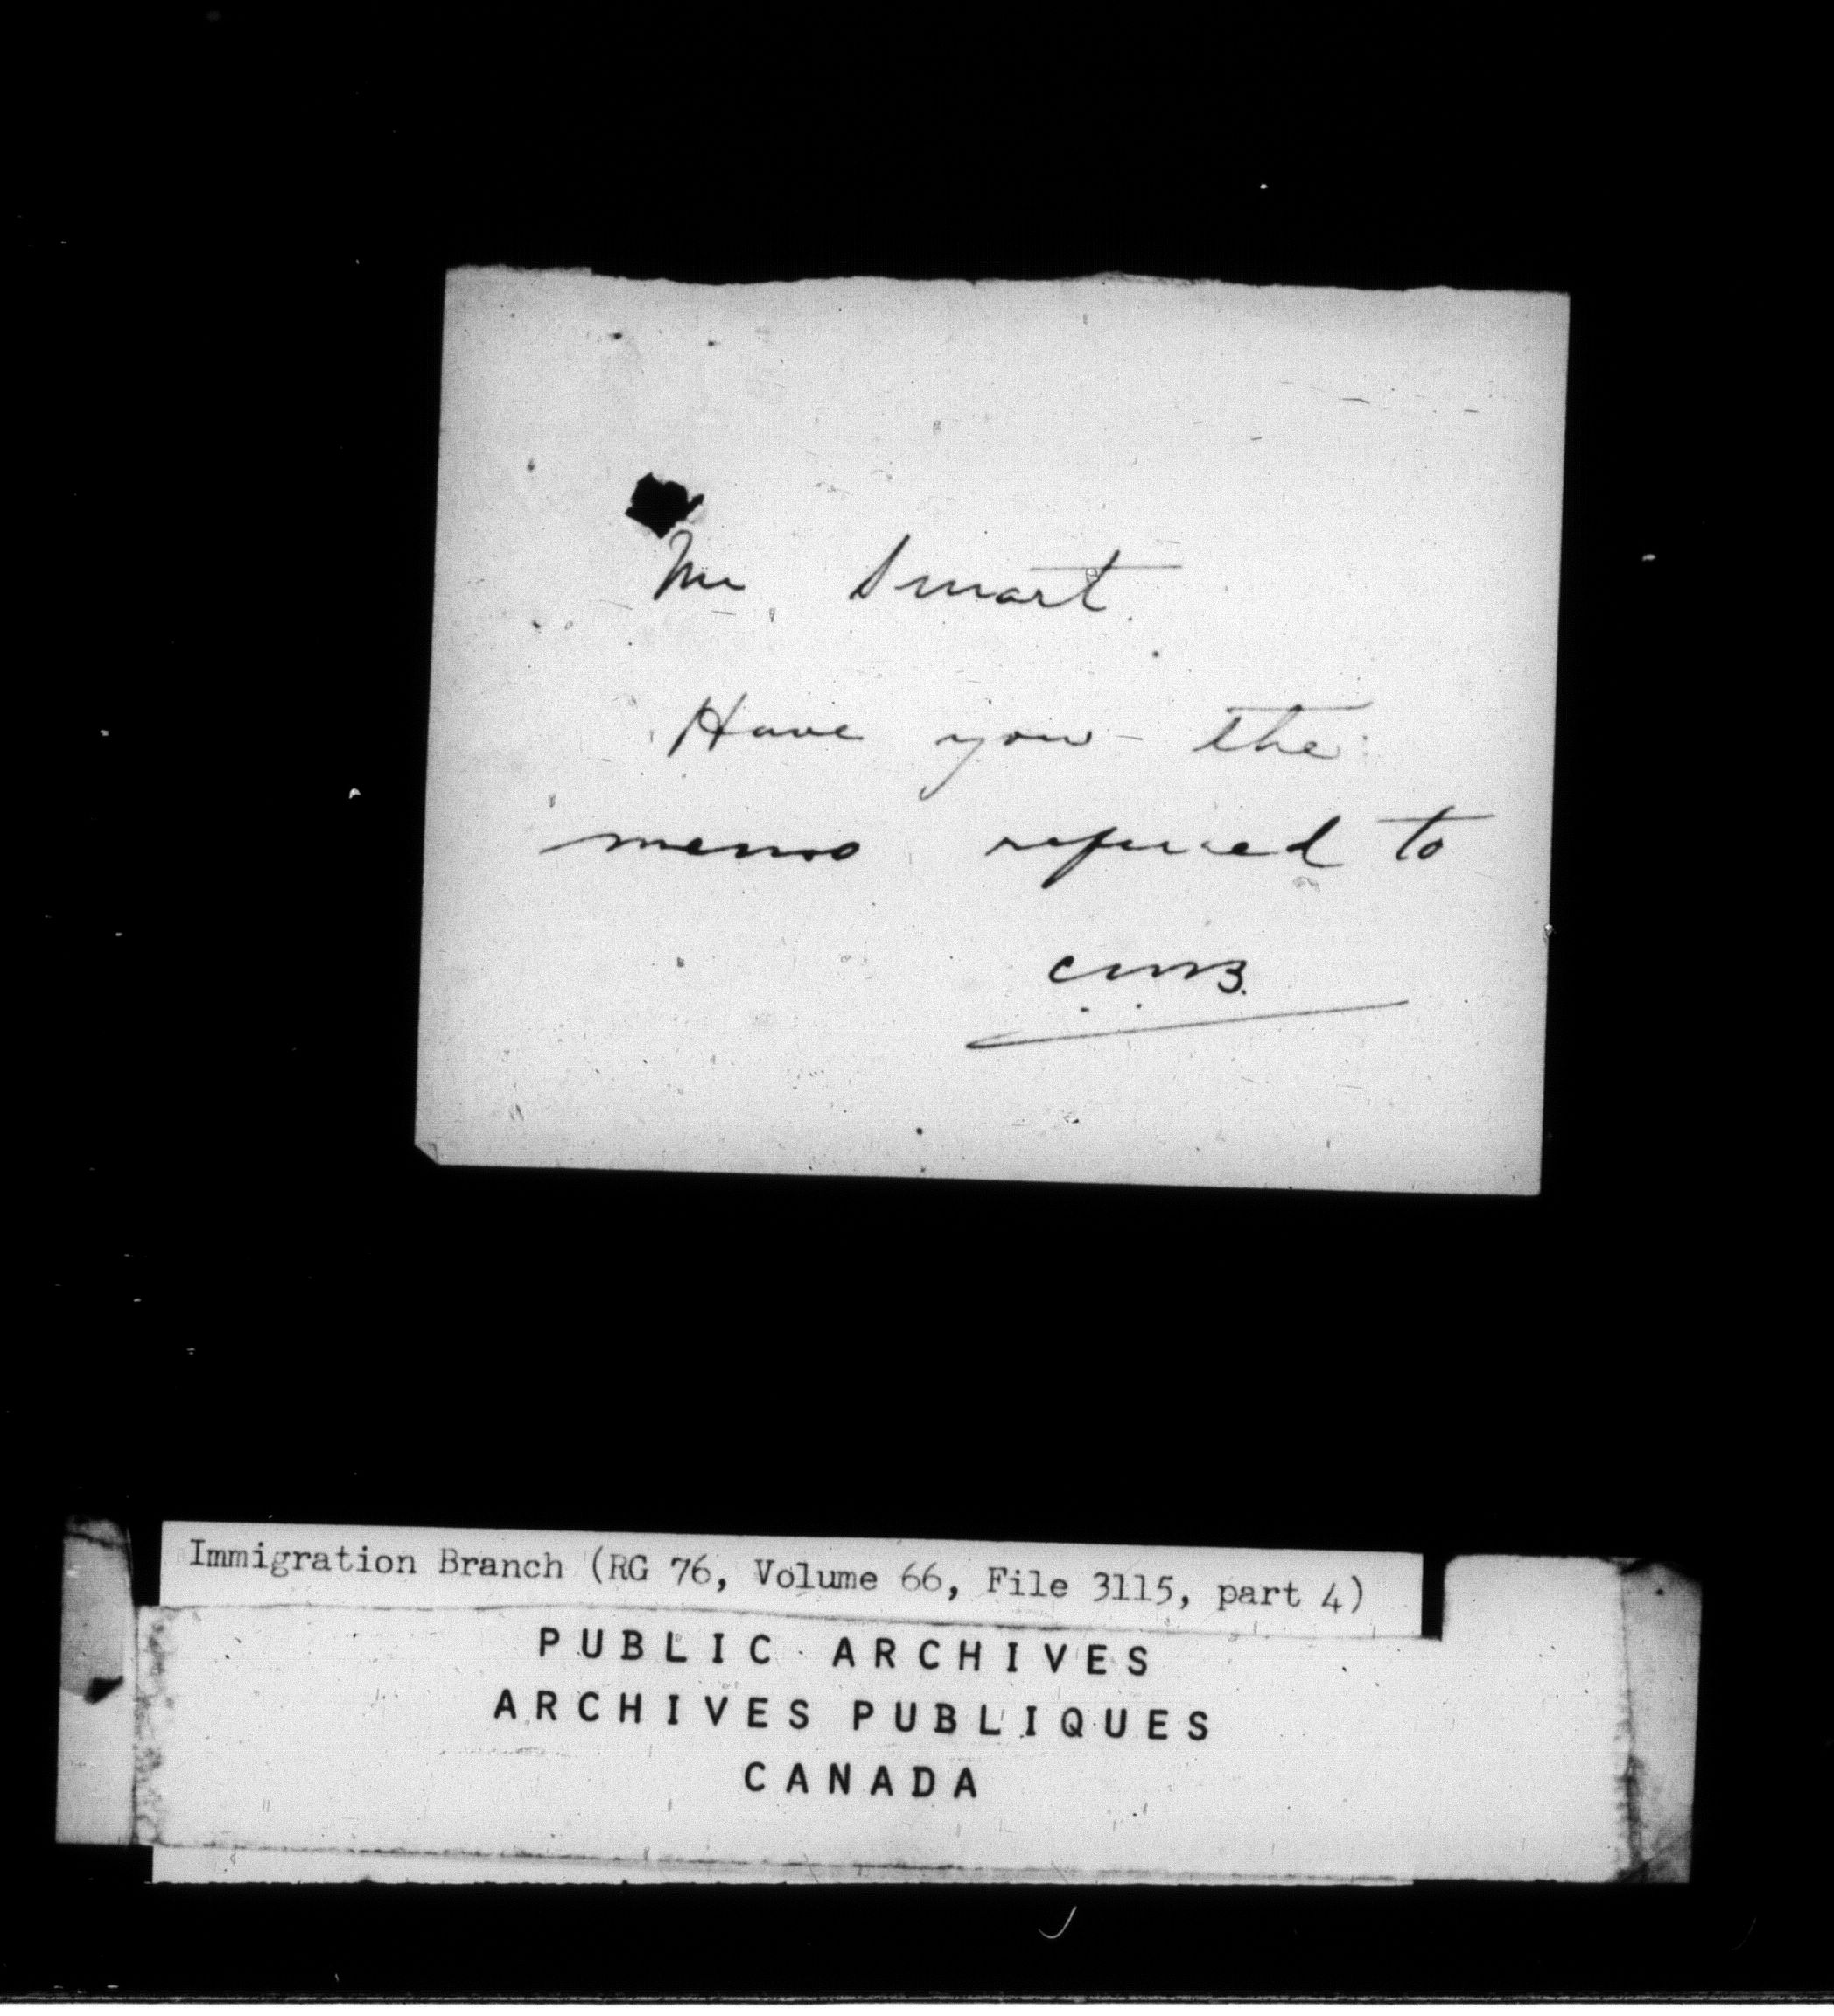 Mr Smart.
Have you the
memo referred to
CMB.
Immigration Branch (RG 76, Volume 66, File 3115, part 4)
PUBLIC ARCHIVES
ARCHIVES PUBLIQUES
CANADA